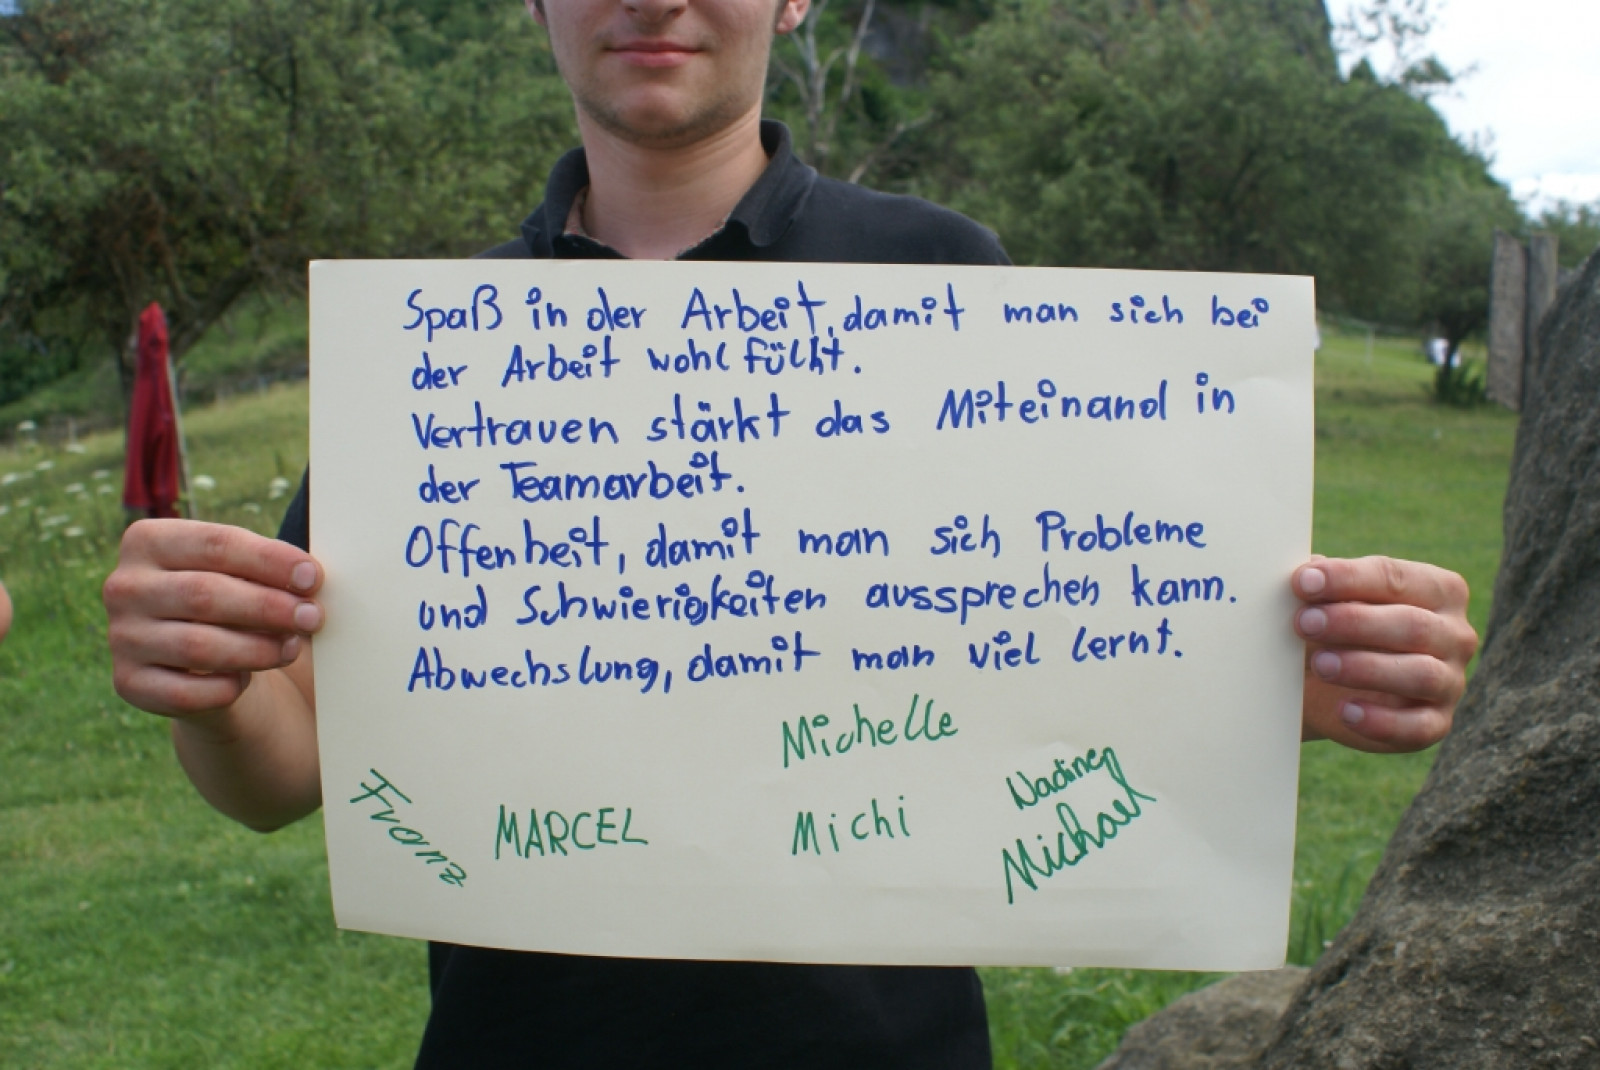 Spaß in der Arbeit, damit man sich bei
der Arbeit wohl fühlt.
Vertrauen stärkt das Miteinand in
der Teamarbeit.
Offenheit, damit man sich Probleme
und Schwierigkeiten aussprechen kann.
Abwechslung, damit man viel lernt.
Michelle
Nadine
Franz MARCEL Michi Michael